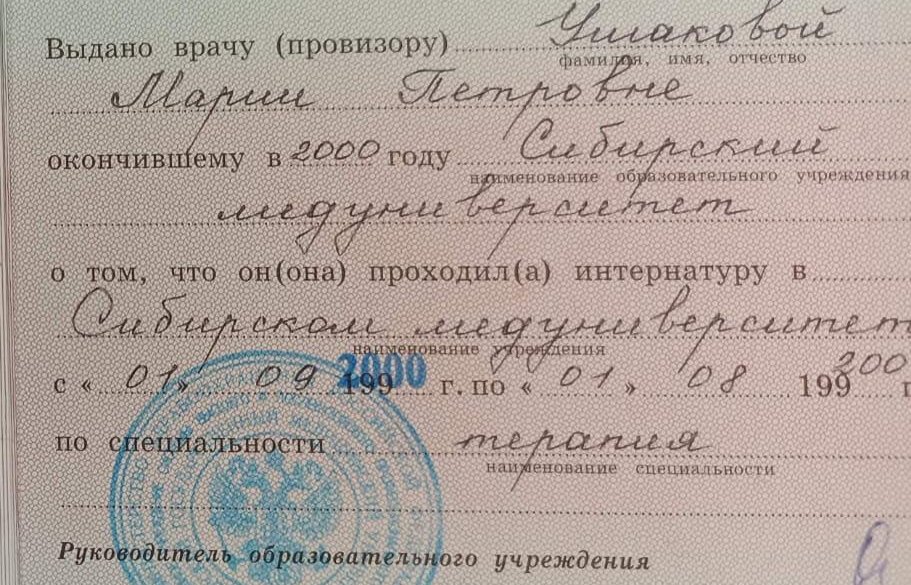 Выдано врачу (провизору) Ушаковой
фамилия, имя, отчество
Марии Петровне
окончившему в 2000 году Сибирский
наименование образовательного учреждения
медуниверситет
о том, что он(она) проходил(а) интернатуру в
Сибирском медуниверситет
наименование учреждения
с « 01 » 09 199 2000 г. по « 01 » 08 199 200 г
по специальности терапия
наименование специальности
Руководитель образовательного учреждения